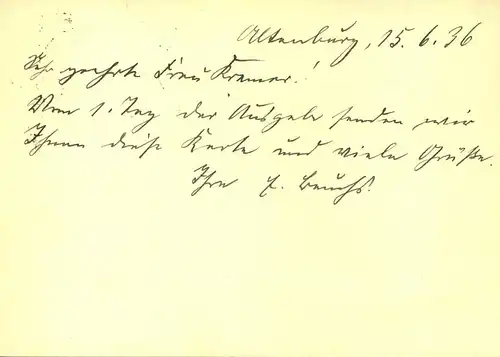 Altenburg, 15. 6. 36
Sehr geehrte Frau Kramer!
Vom 1. Tag der Ausgabe senden wir
Ihnen diese Karte und viele Grüße.
Ihre E.